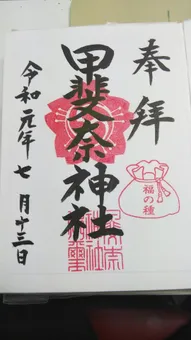 奉拝
甲斐奈神社
福の種
令和元年七月十三日